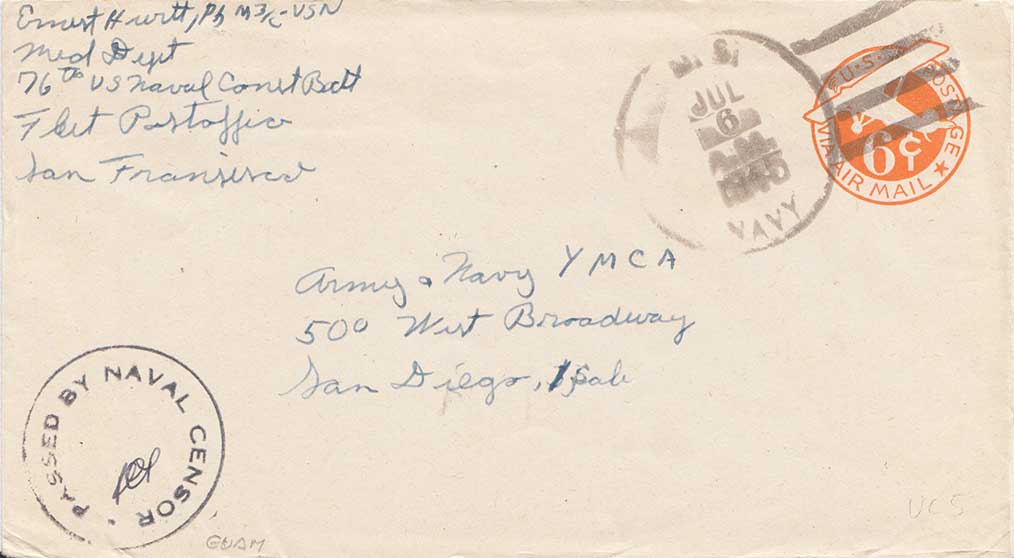 Ernest Hewitt, Ph M 3/c - USN
Med Dept
76th US Naval Const Batt
Fleet Postoffice
San Fransisco
U.S.
JUL
6
A.M.
1945
NAVY
U.S. POSTAGE
6¢
VIA AIR MAIL
Army & Navy YMCA
500 West Broadway
San Diego, Calif
PASSED BY NAVAL CENSOR
GUAM
UC5